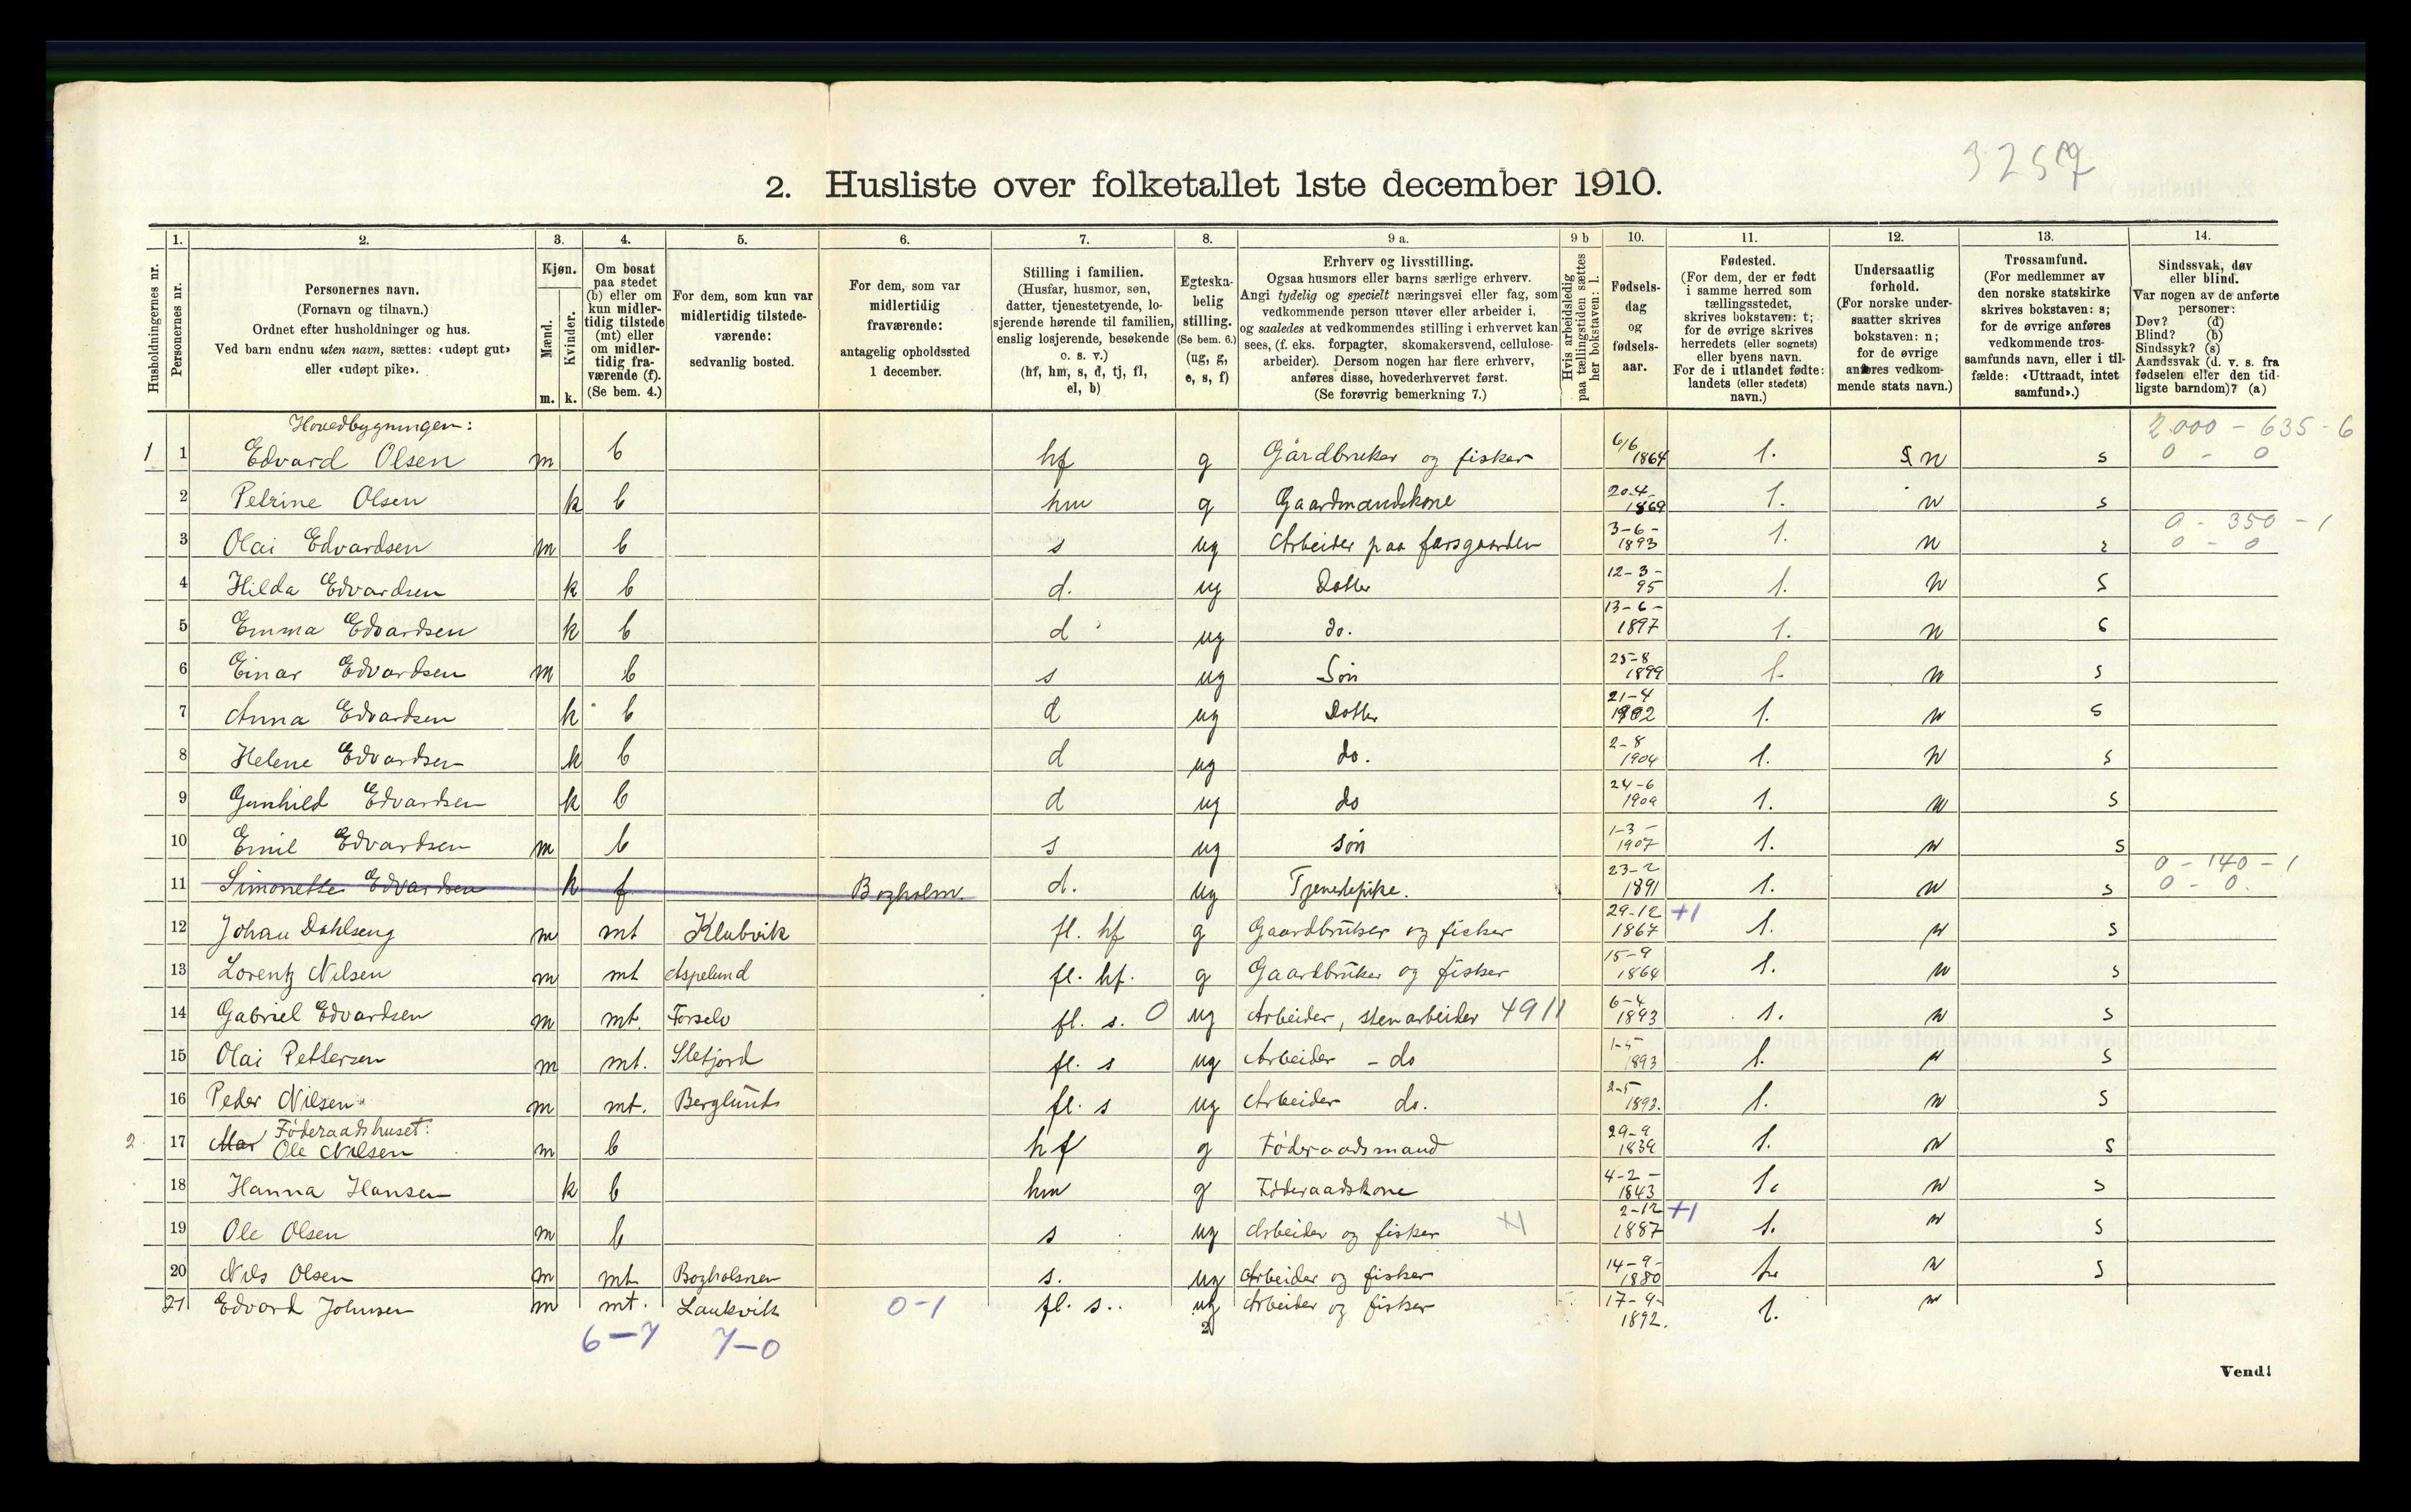 3257
2. Husliste over folketallet 1ste december 1910.
Husholdningernes nr.
1. Personernes nr.
2. Personernes navn.
(Fornavn og tilnavn.)
Ordnet efter husholdninger og hus.
Ved barn endnu uten navn, sættes: «udøpt gut»
eller «udøpt pike».
3. Kjøn.
Mænd. m.
Kvinder. k.
4. Om bosat
paa stedet
(b) eller om
kun midler-
tidig tilstede
(mt) eller
om midler-
tidig fra-
værende (f).
(Se bem. 4.)
5. For dem, som kun var
midlertidig tilstede-
værende:
sedvanlig bosted.
6. For dem, som var
midlertidig
fraværende:
antagelig opholdssted
1 december.
7. Stilling i familien.
(Husfar, husmor, søn,
datter, tjenestetyende, lo-
sjerende hørende til familien,
enslig losjerende, besøkende
o. s. v.)
(hf, hm, s, d, tj, fl,
el, b)
8. Egteska-
belig
stilling.
(Se bem. 6.)
(ug, g,
e, s, f)
9 a. Erhverv og livsstilling.
Ogsaa husmors eller barns særlige erhverv.
Angi tydelig og specielt næringsvei eller fag, som
vedkommende person utøver eller arbeider i,
og saaledes at vedkommendes stilling i erhvervet kan
sees, (f. eks. forpagter, skomakersvend, cellulose-
arbeider). Dersom nogen har flere erhverv,
anføres disse, hovederhvervet først.
(Se forøvrig bemerkning 7.)
9 b Hvis arbeidsledig
paa tællingstiden sættes
her bokstaven: l.
10. Fødsels-
dag
og
fødsels-
aar.
11. Fødested.
(For dem, der er født
i samme herred som
tællingsstedet,
skrives bokstaven: t;
for de øvrige skrives
herredets (eller sognets)
eller byens navn.
For de i utlandet fødte:
landets (eller stedets)
navn.)
12. Undersaatlig
forhold.
(For norske under-
saatter skrives
bokstaven: n;
for de øvrige
anføres vedkom-
mende stats navn.)
13. Trossamfund.
(For medlemmer av
den norske statskirke
skrives bokstaven: s;
for de øvrige anføres
vedkommende tros-
samfunds navn, eller i til-
fælde: «Uttraadt, intet
samfund».)
14. Sindssvak, døv
eller blind.
Var nogen av de anførte
personer:
Døv? (d)
Blind? (b)
Sindssyk? (s)
Aandssvak (d. v. s. fra
fødselen eller den tid-
ligste barndom)? (a)
Hovedbygningen: 2.000 - 635 - 6
1 1 Edvard Olsen m b hf g Gårdbruker og fisker 6/6 1864 1. n s 0 - 0
2 Petrine Olsen k b hm g Gaardmandskone 20-4- 1869 1. n s
3 Olai Edvardsen m b s ug Arbeider paa farsgaarden 3-6- 1893 1. n s 0 - 350 - 1 0 - 0
4 Hilda Edvardsen k b d. ug Datter 12-3- 95 1. n s
5 Emma Edvardsen k b d ug do. 13-6- 1897 1. n s
6 Einar Edvardsen m b s ug Søn 25-8 1899 1. n s
7 Anna Edvardsen k b d ug Datter 21-4 1902 1. n s
8 Helene Edvardsen k b d ug do. 2-8 1904 1. n s
9 Gunhild Edvardsen k b d ug do 24-6 1909 1. n s
10 Emil Edvardsen m b s ug søn 1-3- 1907 1. n s
11 Simonette Edvardsen k f Bogholm. d. ug Tjenestepike. 23-2 1891 1. n s 0 - 140 - 1 0 - 0.
12 Johan Dahlseng m mt Klubvik fl. hf g Gaardbruker og fisker 29-12 1867 +1 1. n s
13 Lorentz Nilsen m mt Aspelund fl. hf. g Gaardbruker og fisker 15-9 1864 1. n s
14 Gabriel Edvardsen m mt. Forselv fl. s. 0 ug Arbeider, stenarbeider 4911 6-4 1893 1. n s
15 Olai Pettersen m mt. Sletjord fl. s ug Arbeider - do 1-5 1893 1. n s
16 Peder Nilsen m mt. Berglund fl. s ug Arbeider do. 2-5 1893. 1. n s
Føderaadshuset:
2 17 Mar Ole Nilsen m b hf g Føderaadsmand 29-9 1839 1. n s
18 Hanna Hansen k b hm g Føderaadskone 4-2- 1843 1. n s
19 Ole Olsen m b s ug Arbeider og fisker +1 2-12 1887 +1 1. n s
20 Nils Olsen m mt Bogholmen s. ug Arbeider og fisker 14-9- 1880 1. n s
21 Edvard Johnsen m mt. Laukvik 0-1 fl. s. ug Arbeider og fisker 17-9- 1892. 1. n
6-7 7-0 2
Vend!